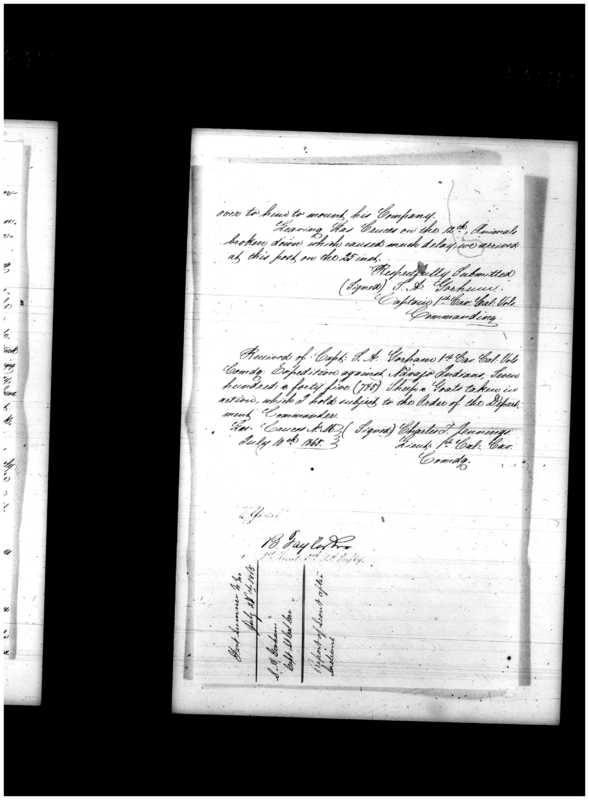 over to him to mount his Company.
Leaving Las Cruces on the 12th, Animals
broken down which caused much delay, we arrived
at this post on the 25 inst.
Respectfully Submitted
(Signed) S. A. Gorham
Captain 1st Cav. Cal. Vols
Commanding
Received of Capt. S. A. Gorham 1st Cav Cal Vols
Comdg Expedition against Navajo Indians, Seven
hundred & forty five (745) Sheep & Goats taken in
action, which I hold subject to the Order of the Depart
ment Commander.
Las Cruces N. M. (Signed) Charles F. Jennings
July 10th 1865. Lieut. 1st Cal. Cav.
Comdg.
B. Taylor
Fort Sumner N. M.
July 28th 1865
S. A. Gorham
Capt 1st Cav
Report of Scout after
Indians